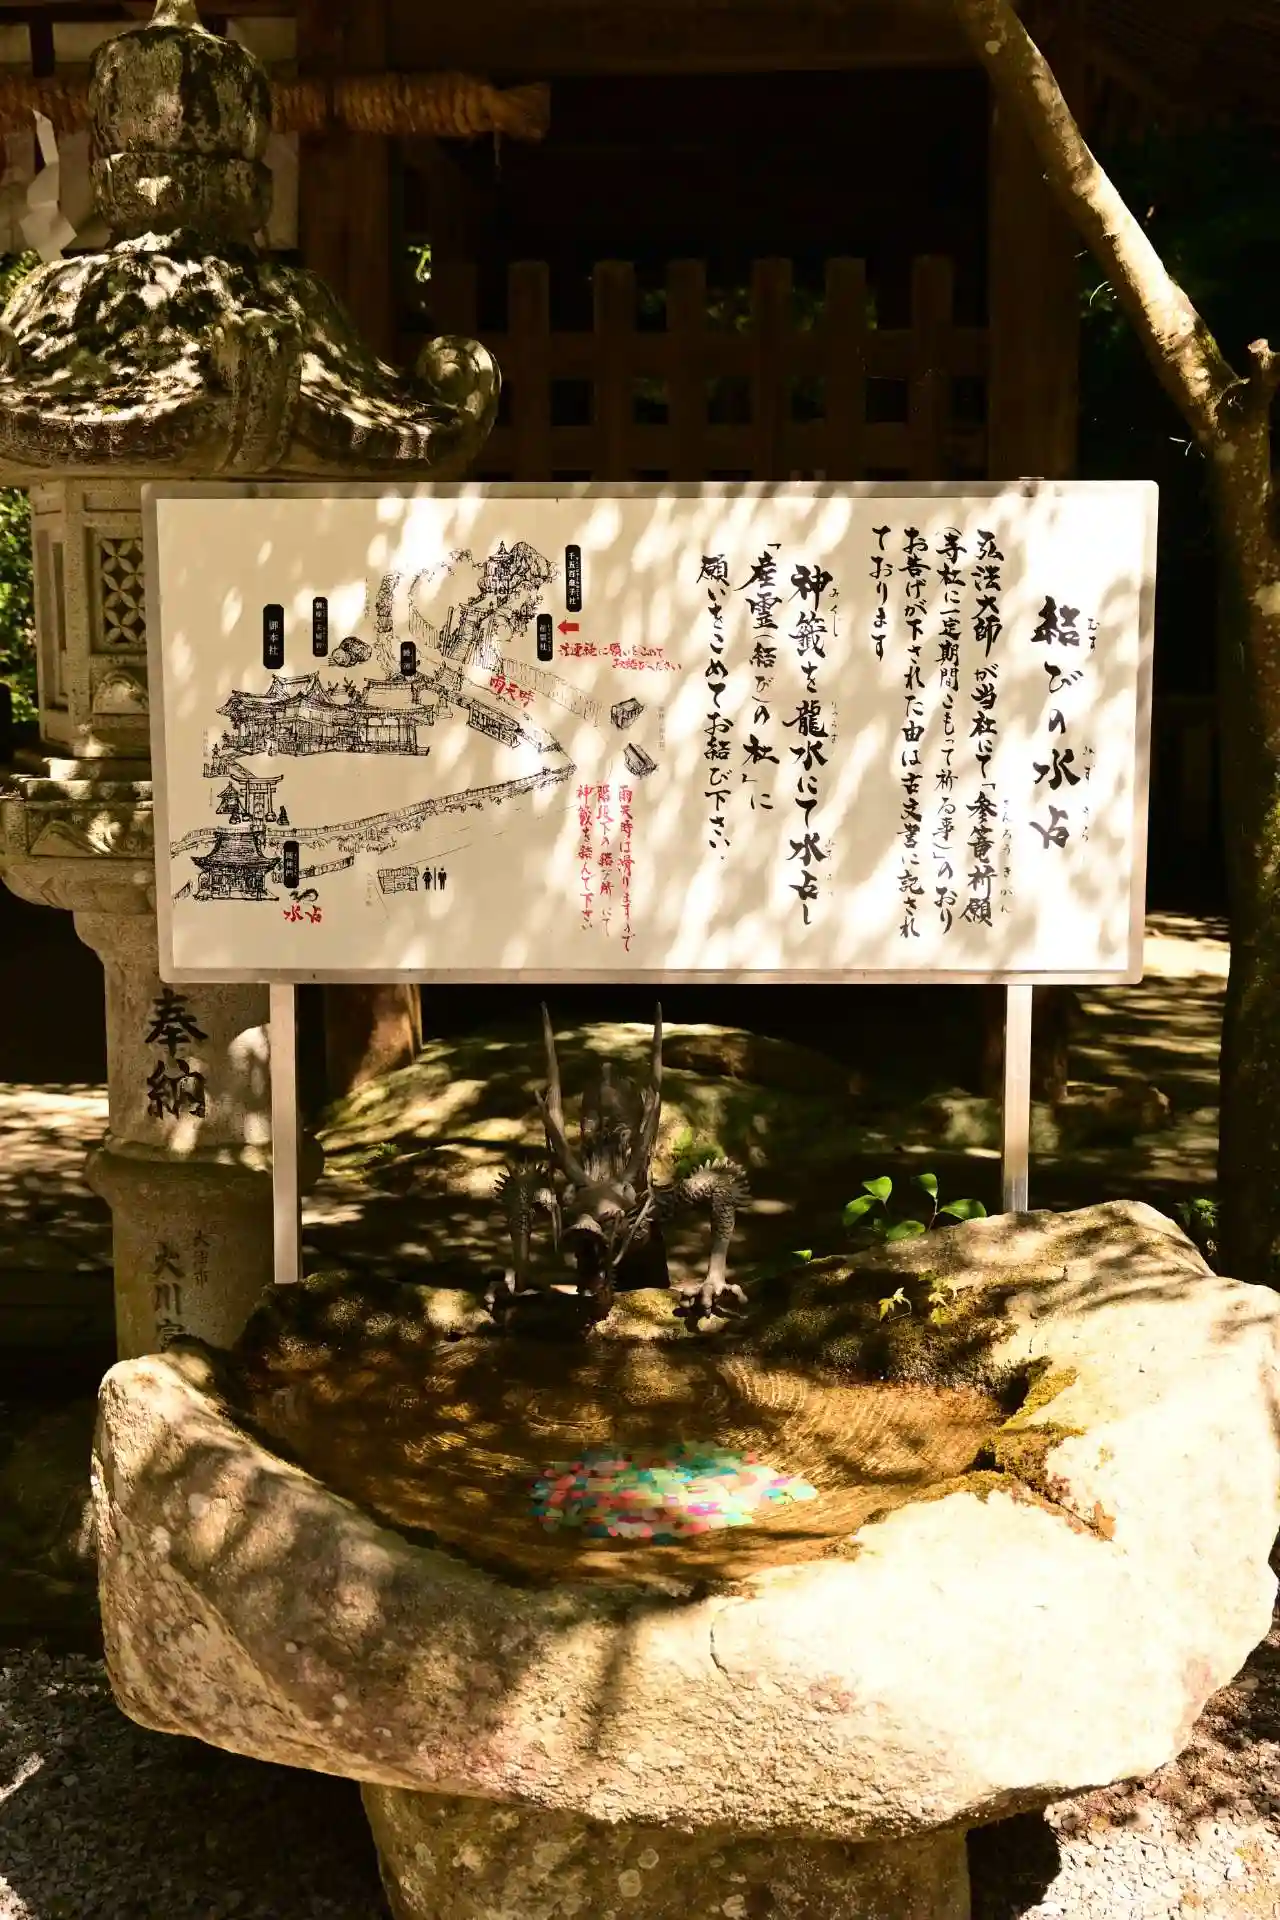 結びの水占
むす
みずうら
弘法大師 が当社にて「参篭祈願
さんろうきがん
(寺社に一定期間こもって祈る事)」のおり
お告げが下された由は古文書に記され
ております
神籤を龍水にて水占し
みくじ
「産霊(結び)の社」に
願いをこめてお結び下さい。
千五百産子社
産霊社
御本社
雨天時
雨天時は滑りますので
階段下の結び所 にて
神籤を結んで下さい
水占
奉納